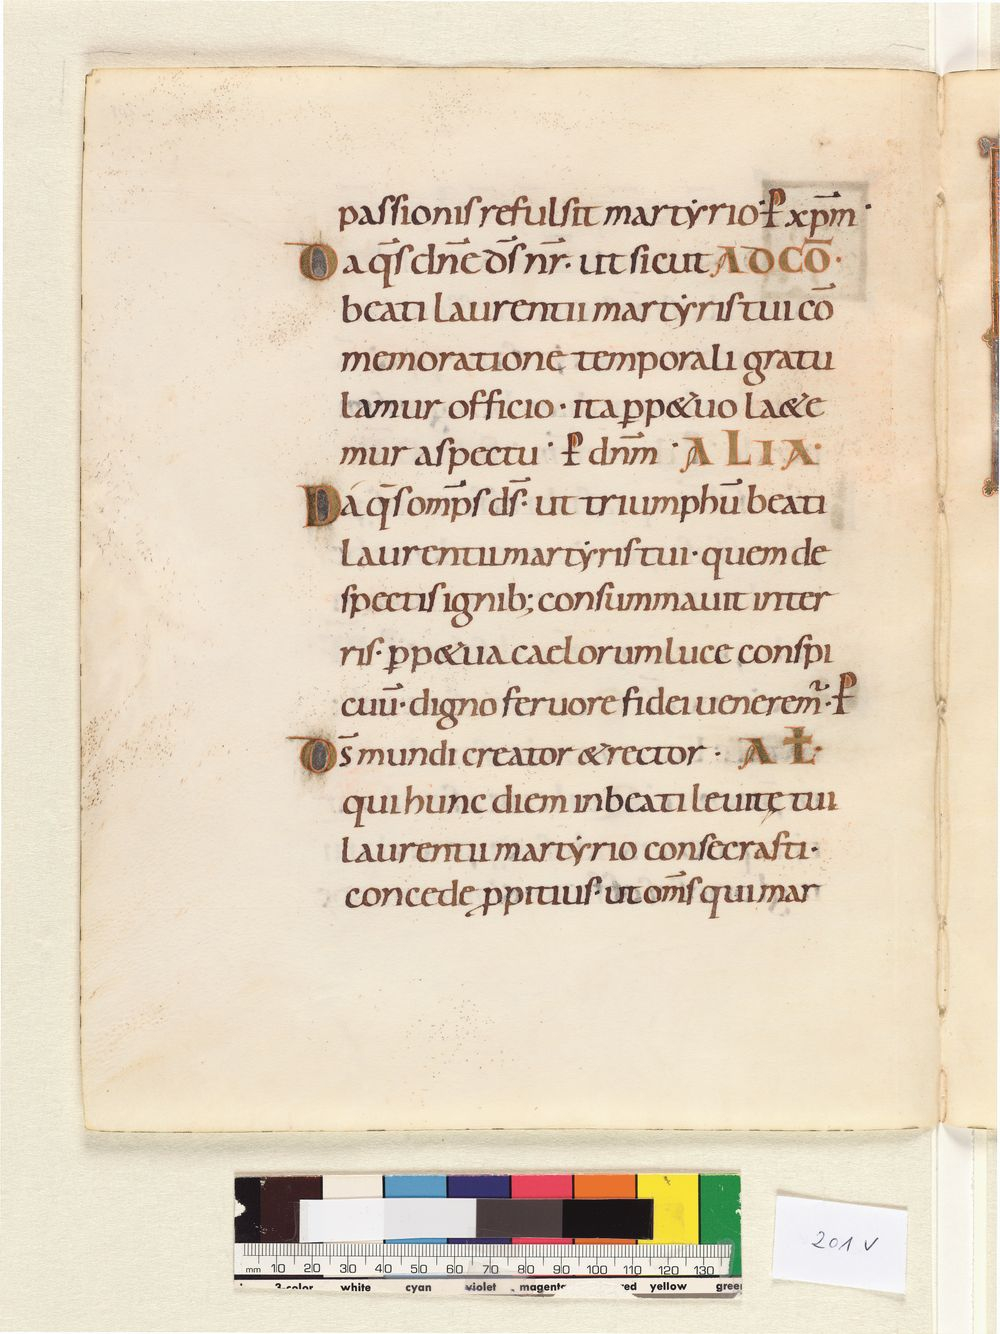 passionis refulsit martẏrio· P̄ xp̄m·
Da q̄s dn̄e ds̄ nr̄· ut sicut AD CO̅·
beati laurentii martẏris tui cō
memoratione temporali gratu
lamur officio· ita pp&uo la&e
mur aspectu· P̄ dnm̄· ALIA·
Da q̄s omp̄s ds̄· ut triumphū beati
laurentii martẏris tui· quem de
spectis ignib; consummauit inter
ris· pp&ua caelorum luce conspi
cuū· digno feruore fidei uenerem̃· P̄
Ds̄ mundi creator & rector· AL̅·
qui hunc diem in beati leuitę tui
laurentii martẏrio consecrasti·
concede ppitius· ut om̄s qui mar
201 v
mm 10 20 30 40 50 60 70 80 90 100 110 120 130
3-color white cyan violet magenta red yellow green